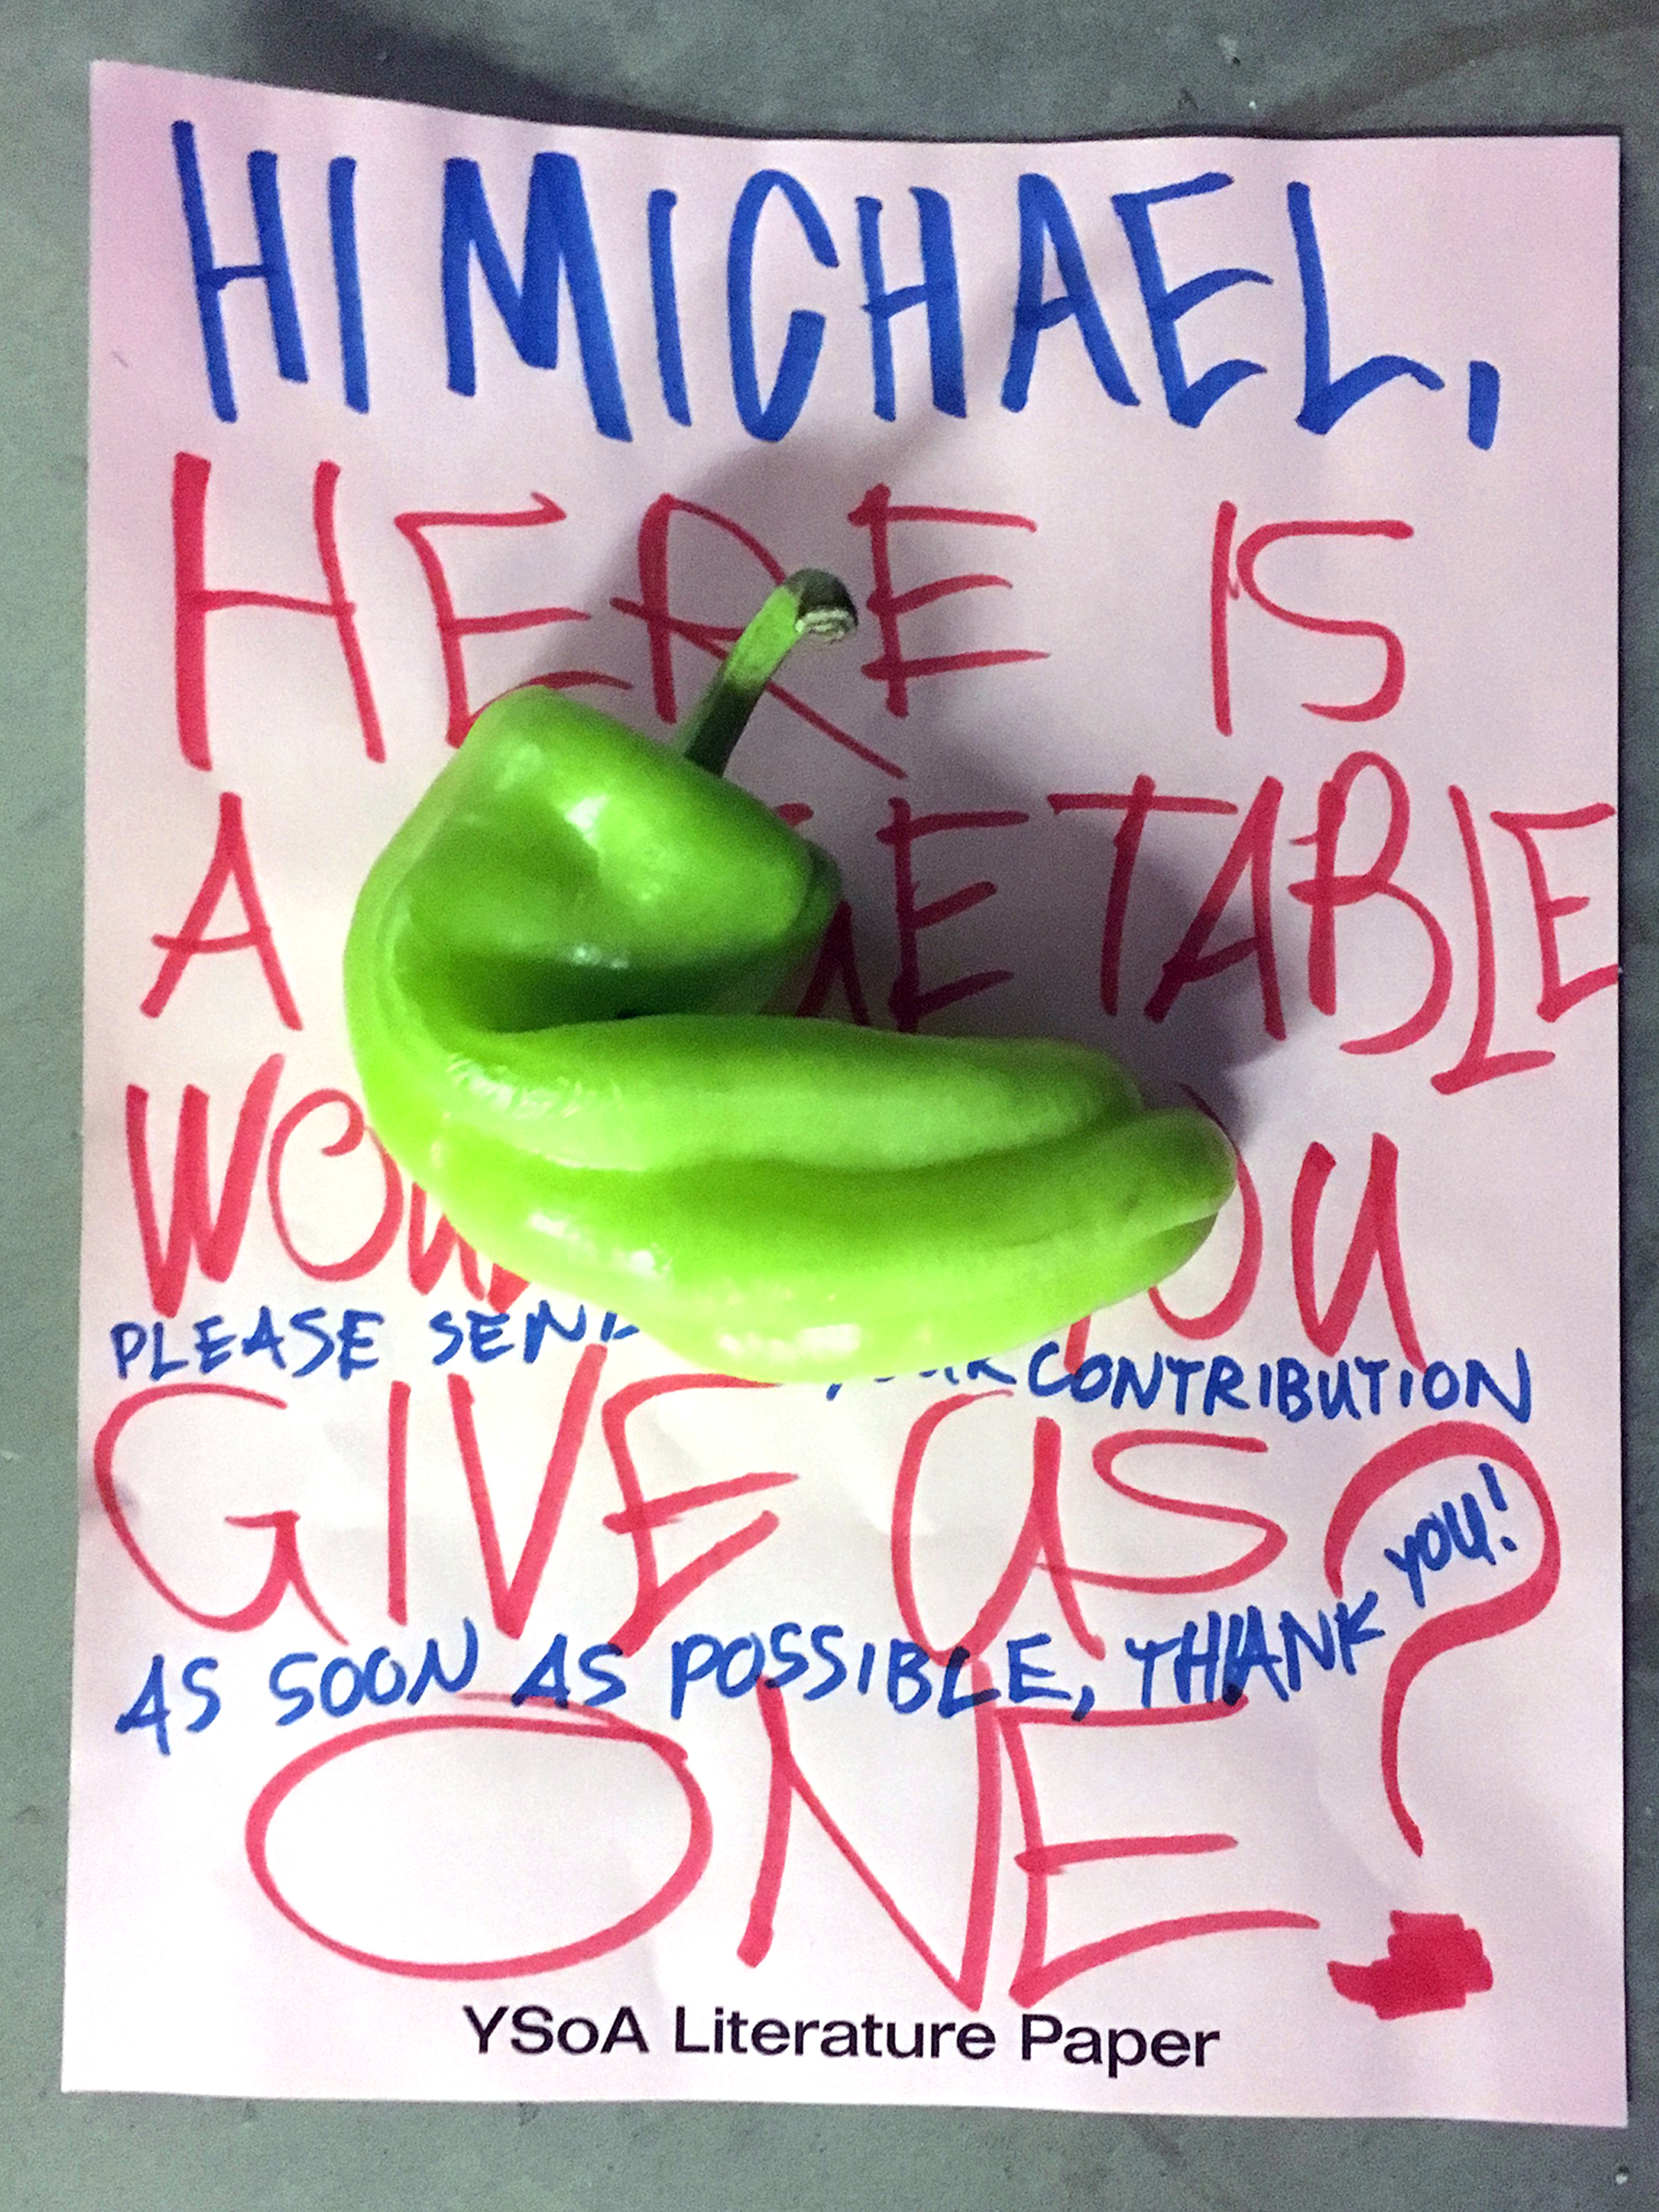 HI MICHAEL,
HERE IS
A VEGETABLE
WOULD YOU
PLEASE SEND YOUR CONTRIBUTION
GIVE US
YOU!
AS SOON AS POSSIBLE, THANK
ONE?
YSoA Literature Paper